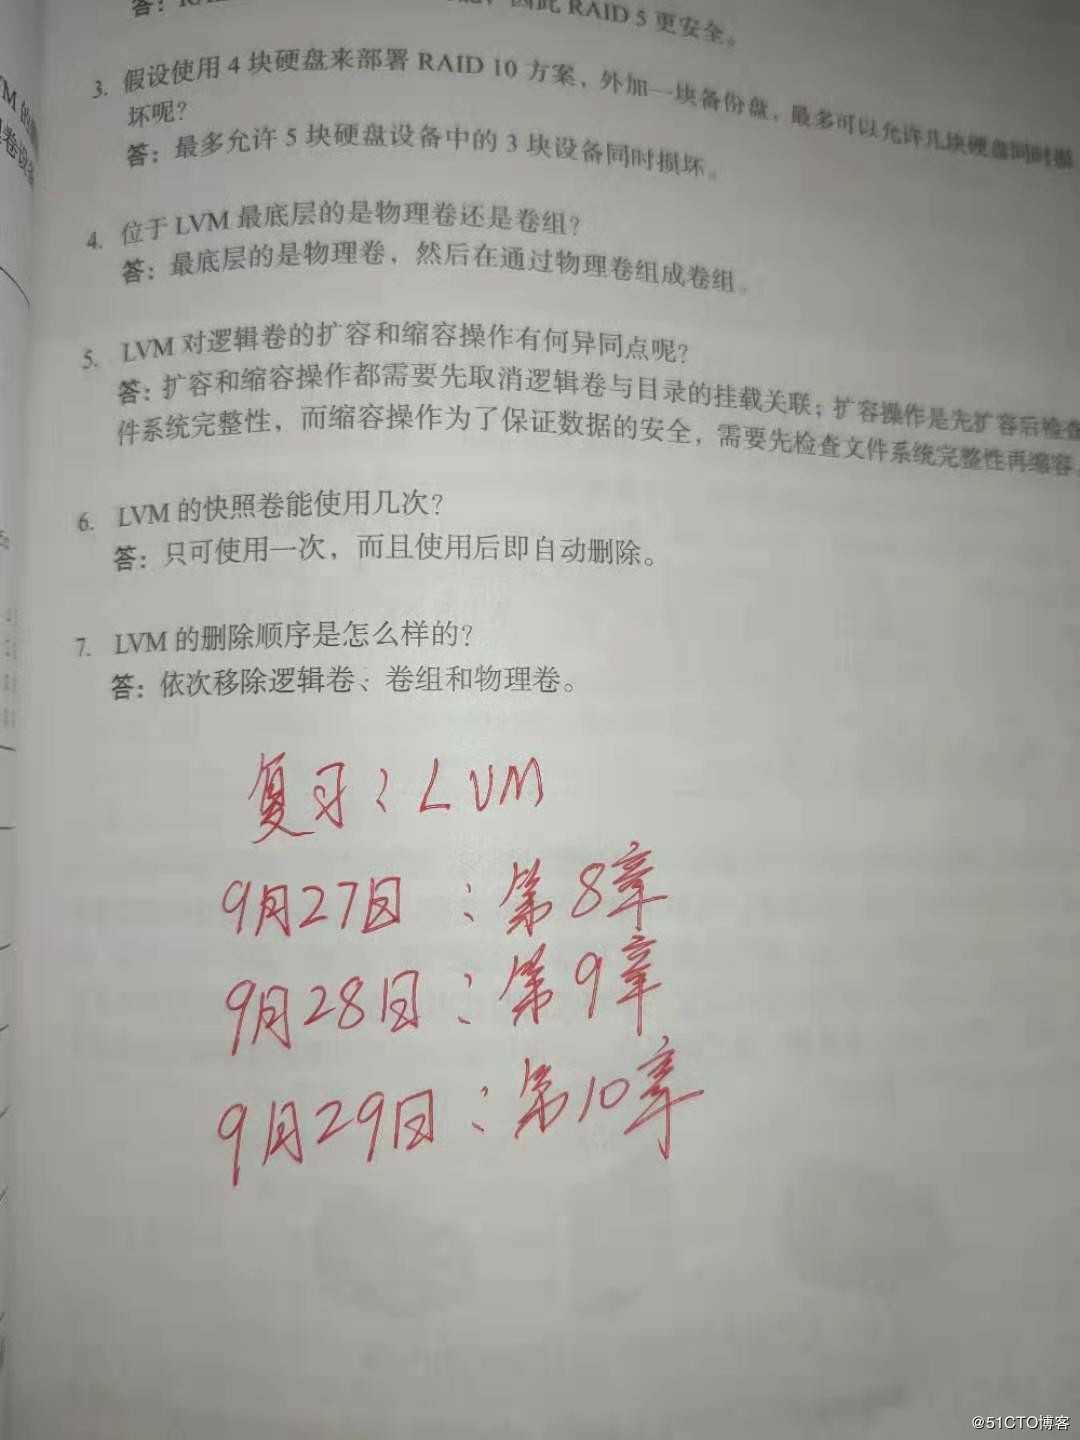 答：
因此 RAID 5 更安全。
3. 假设使用 4 块硬盘来部署 RAID 10 方案，外加一块备份盘，最多可以允许几块硬盘同时损
坏呢？
答：最多允许 5 块硬盘设备中的 3 块设备同时损坏。
4. 位于 LVM 最底层的是物理卷还是卷组？
答：最底层的是物理卷，然后在通过物理卷组成卷组。
5. LVM 对逻辑卷的扩容和缩容操作有何异同点呢？
答：扩容和缩容操作都需要先取消逻辑卷与目录的挂载关联；扩容操作是先扩容后检查
件系统完整性，而缩容操作为了保证数据的安全，需要先检查文件系统完整性再缩容。
6. LVM 的快照卷能使用几次？
答：只可使用一次，而且使用后即自动删除。
7. LVM 的删除顺序是怎么样的？
答：依次移除逻辑卷、卷组和物理卷。
复习：LVM
9月27日：第8章
9月28日：第9章
9月29日：第10章
@51CTO博客